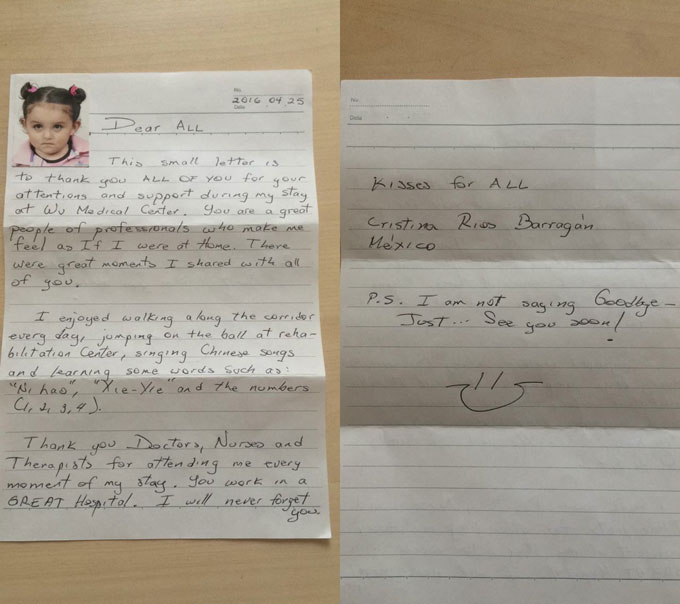 No.
2016 04 25
Date
Dear ALL
This small letter is
to thank you ALL OF YOU for your
attentions and support during my stay
at Wu Medical Center. You are a great
people of professionals who make me
feel as If I were at Home. There
were great moments I shared with all
of you.
I enjoyed walking along the corridor
every day, jumping on the ball at reha-
bilitation Center, singing Chinese songs
and learning some words such as:
"Ni hao", "Xie-Yie" and the numbers
(1, 2, 3, 4).
Thank you Doctors, Nurses and
Therapists for attending me every
moment of my stay. You work in a
GREAT Hospital. I will never forget
you.
No.
Date
Kisses for ALL
Cristina Rios Barragán
México
P.S. I am not saying Goodbye-
Just... See you soon!